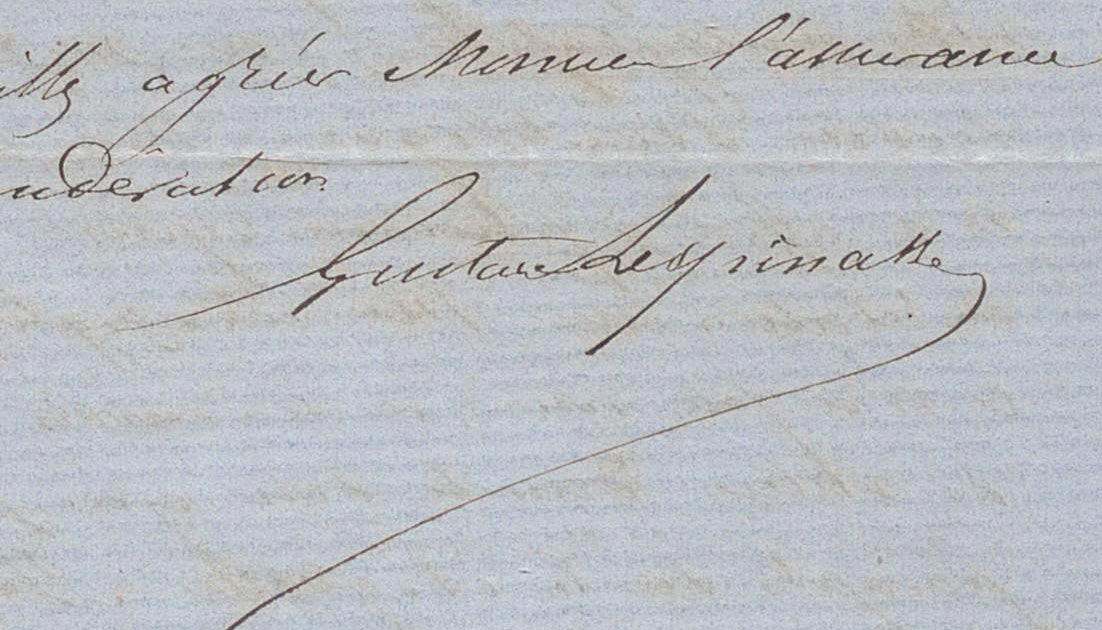 illez agréer Monsieur l'assurance
nsidération
Gustave Lespinasse